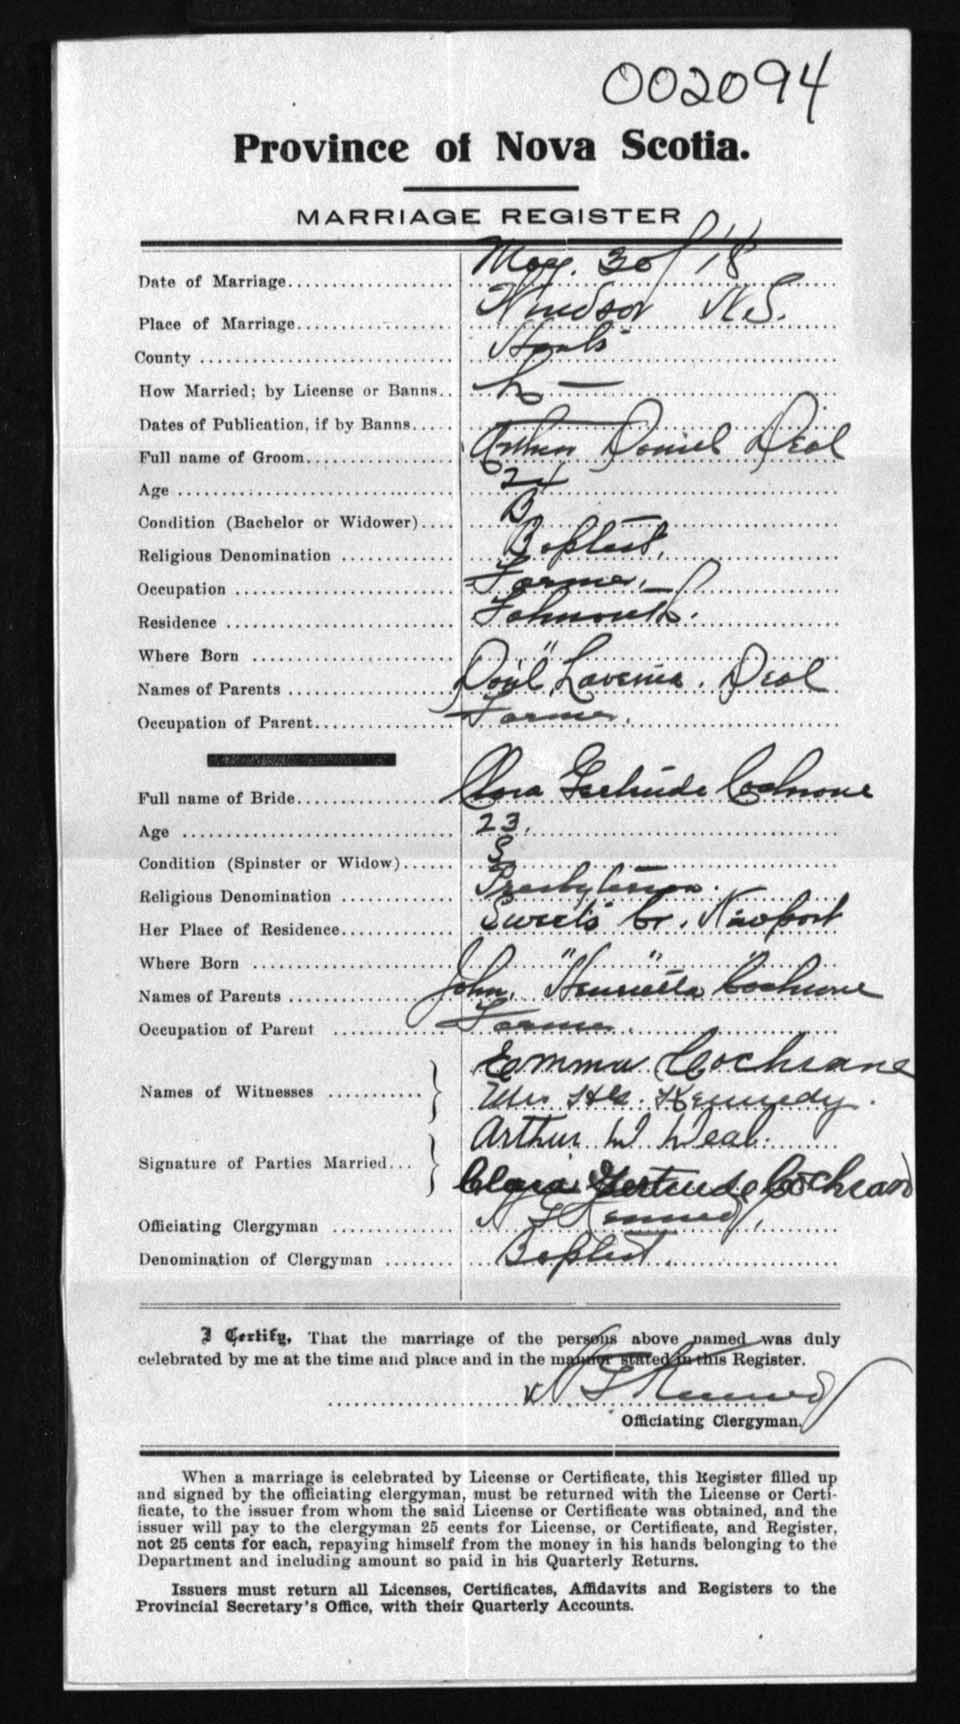 002094
Province of Nova Scotia.
MARRIAGE REGISTER
Date of Marriage May. 30/18
Place of Marriage Windsor N.S.
County Hants
How Married; by License or Banns L —
Dates of Publication, if by Banns
Full name of Groom Arthur Daniel Deal
Age 24
Condition (Bachelor or Widower) B
Religious Denomination Baptist.
Occupation Farmer.
Residence Falmouth.
Where Born " "
Names of Parents Lavenia. Deal
Occupation of Parent Farmer.
Full name of Bride Clara Gertrude Cochrane
Age 23.
Condition (Spinster or Widow) S
Religious Denomination Presbyterian.
Her Place of Residence Sweets Cr. Newport
Where Born " " "
Names of Parents John, Henrietta Cochrane
Occupation of Parent Farmer.
Names of Witnesses Emma Cochrane
Mrs Kennedy.
Signature of Parties Married Arthur D Deal.
Clara Gertrude Cochran
Officiating Clergyman Kennedy,
Denomination of Clergyman Baptist.
I Certify, That the marriage of the persons above named was duly
celebrated by me at the time and place and in the manner stated in this Register.
Kennedy
Officiating Clergyman.
When a marriage is celebrated by License or Certificate, this Register filled up
and signed by the officiating clergyman, must be returned with the License or Certi-
ficate, to the issuer from whom the said License or Certificate was obtained, and the
issuer will pay to the clergyman 25 cents for License, or Certificate, and Register,
not 25 cents for each, repaying himself from the money in his hands belonging to the
Department and including amount so paid in his Quarterly Returns.
Issuers must return all Licenses, Certificates, Affidavits and Registers to the
Provincial Secretary's Office, with their Quarterly Accounts.